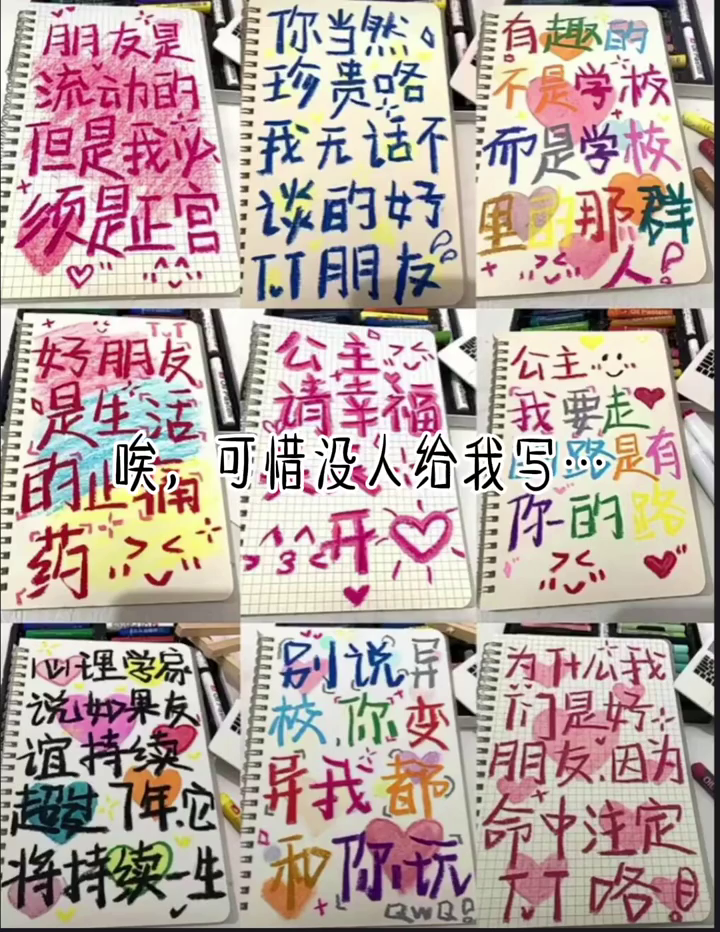 朋友是
流动的
但是我必
须是正宫
你当然
珍贵咯
我无话不
谈的好
T.T朋友
有趣的
不是学校
而是学校
里的那群
人!
好朋友 T.T
是生活
的止痛
药
公主
请幸福
开
公主
我要走
的路是有
你的路
唉,可惜没人给我写…
心理学家
说如果友
谊持续
超过7年.它
将持续一生
别说异
校.你变
异我都
和你玩
QWQ!
为什么我
们是好
朋友.因为
命中注定
T.T咯!